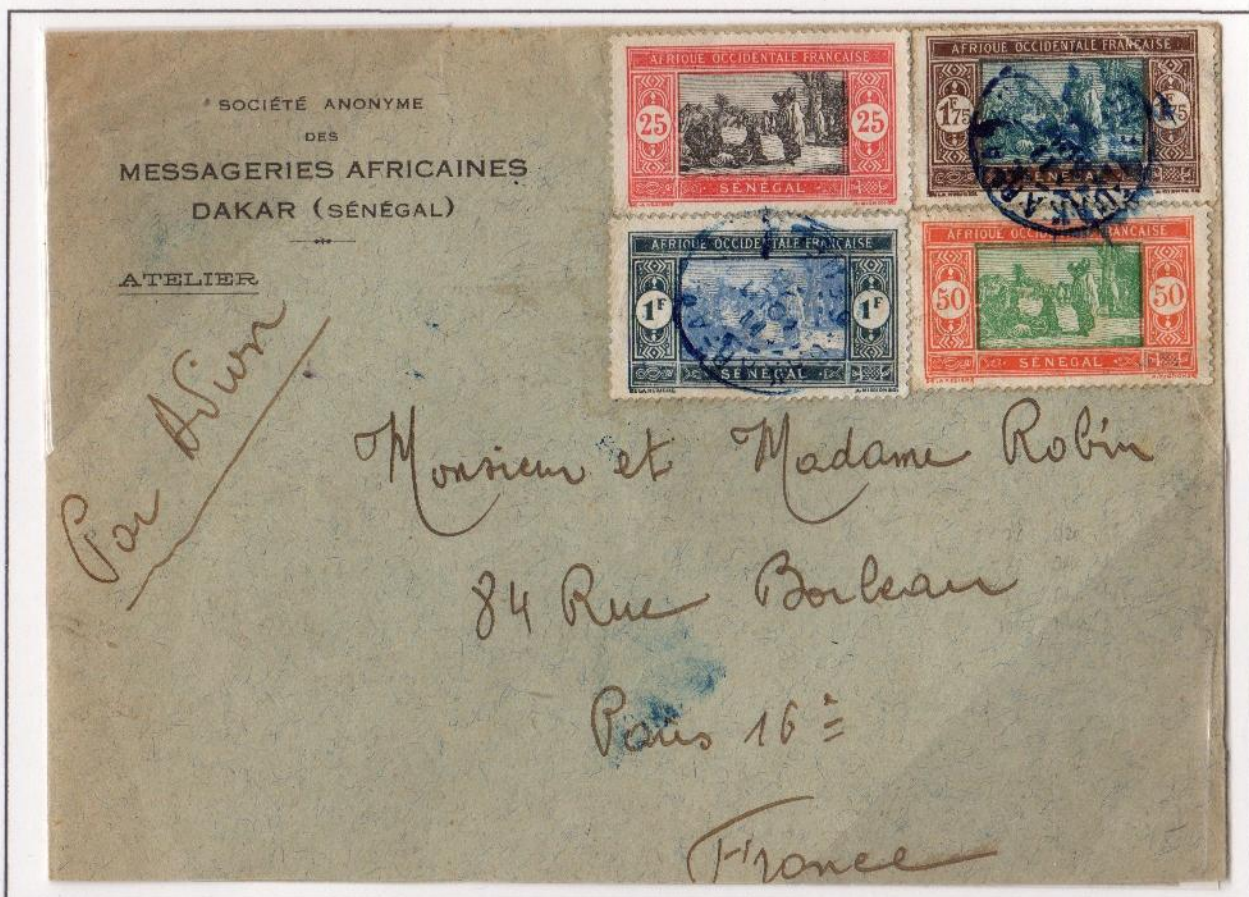 SOCIÉTÉ ANONYME
DES
MESSAGERIES AFRICAINES
DAKAR (SÉNÉGAL)
ATELIER
Par Avion
AFRIQUE OCCIDENTALE FRANÇAISE
25 25
SÉNÉGAL
AFRIQUE OCCIDENTALE FRANÇAISE
1F75 75
SÉNÉGAL
AFRIQUE OCCIDENTALE FRANÇAISE
1F 1F
SÉNÉGAL
AFRIQUE OCCIDENTALE FRANÇAISE
50 50
SÉNÉGAL
Monsieur et Madame Robin
84 Rue Boileau
Paris 16è
France